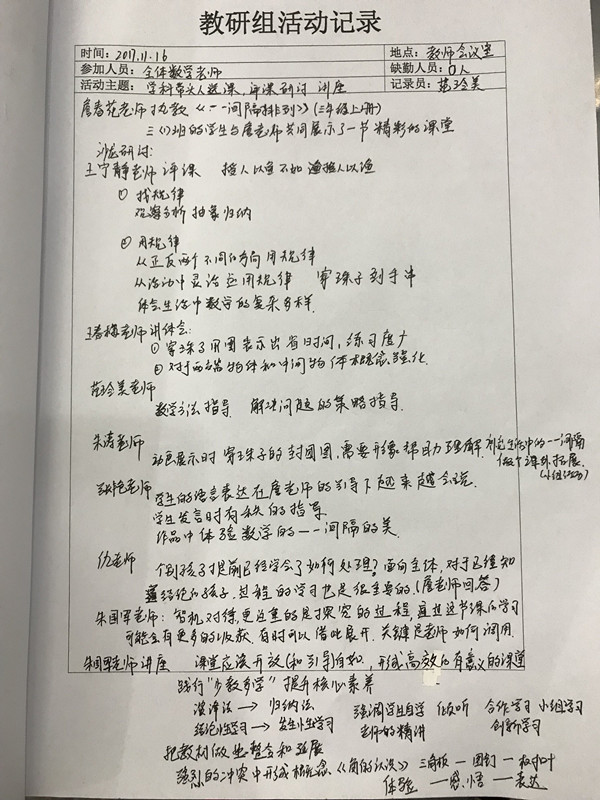 教研组活动记录
时间: 2017.11.16 地点: 教师会议室
参加人员: 全体数学老师 缺勤人员: 0人
活动主题: 学科带头人选课、评课研讨 讲座 记录员: 范玲美
唐春花老师 执教《一一间隔排列》(三年级上册)
三(1)班的学生与唐老师共同展示了一节精彩的课堂
研讨:
王宁静老师 评课 授人以鱼不如 授人以渔
① 找规律
观察分析 抽象归纳
② 用规律
从正反两个不同的方向用规律
从活动中灵活应用规律 穿珠子 到手串
体会生活中数学的复杂多样.
王春梅老师讲体会:
① 穿珠子用图表示出 省时间, 练习度大
② 对于两端物体和中间物体概念强化.
范玲美老师
数学方法指导 解决问题的策略指导.
朱涛老师
动态展示时 穿珠子的封闭图, 需要 帮助理解. 生活中的一一间隔
做个课外拓展.
(小组活动)
老师 学生的语言表达在唐老师的引导下越来越合理.
学生发言时有 的指导
作品中体验数学的一一间隔的美.
仇老师 个别孩子提前已经学会了如何处理? 面向全体, 对于已经知
结论的孩子, 过程的学习也是很重要的.(唐老师回答)
朱国军老师: 对练, 更注重的是探究的过程, 这节课的学习
可能会有更多的收获, 有时可以借此展开. 关键是老师如何调用.
朱国军老师讲座 课堂应该开放(和引导)自如, 形成高效的有意义的课堂
践行“少教多学” 提升核心素养
演绎法 → 归纳法 强调学生自学 倾听 合作学习 小组学习
结论性学习 → 发生性学习 老师的精讲 创新学习
把教材做些整合和拓展
强烈的冲突中形成概念.《角的认识》 三角板 — 图钉 — 树叶
体验 — 感悟 — 表达